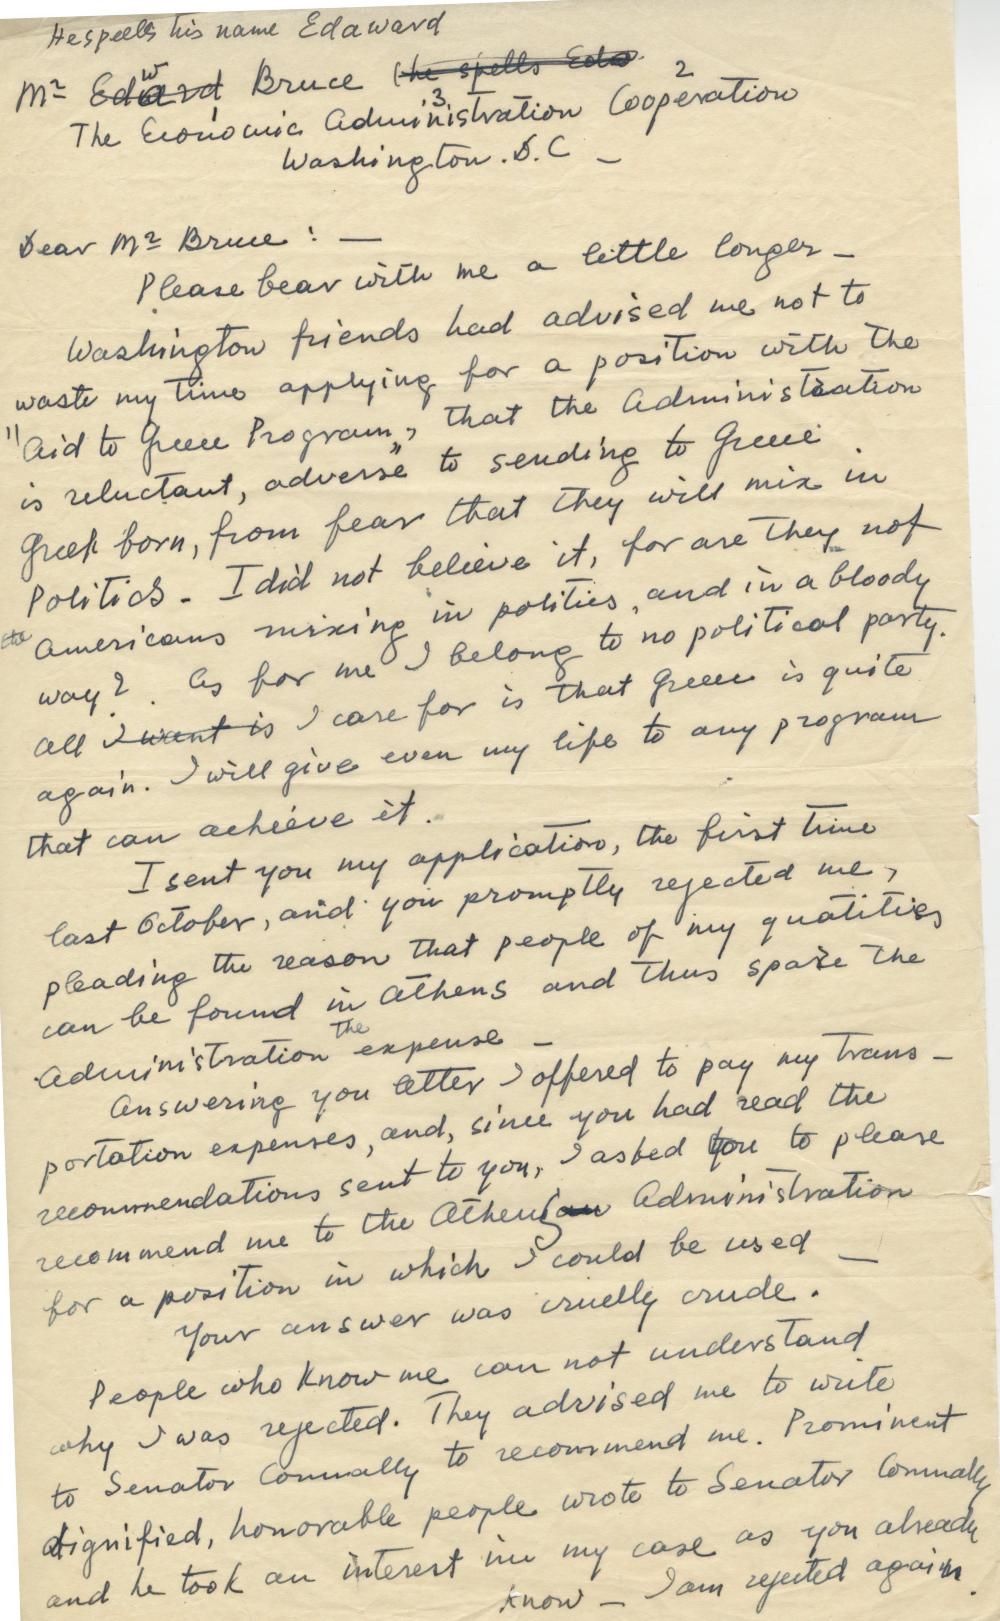 He spells his name Edaward
Mr Edward Bruce (he spells Eda
The Economic Administration Cooperation
3 2
Washington. D.C –
Dear Mr Bruce: —
Please bear with me a little longer –
Washington friends had advised me not to
waste my time applying for a position with the
"Aid to Greece Program," that the Administration
is reluctant, adverse to sending to Greece
Greek born, from fear that they will mix in
Politics – I did not believe it, for are they not
the Americans mixing in politics, and in a bloody
way? As for me I belong to no political party.
All I want is I care for is that Greece is quite
again. I will give even my life to any program
that can achieve it.
I sent you my application, the first time
last October, and you promptly rejected me,
pleading the reason that people of my quatities
can be found in Athens and thus spare the
Administration the expense –
Answering you letter I offered to pay my trans–
portation expenses, and, since you had read the
recommendations sent to you, I asked you to please
recommend me to the Athens Administration
for a position in which I could be used —
Your answer was cruelly crude.
People who know me can not understand
why I was rejected. They advised me to write
to Senator Connally to recommend me. Prominent
dignified, honorable people wrote to Senator Connally
and he took an interest in my case as you already
know – I am rejected again.